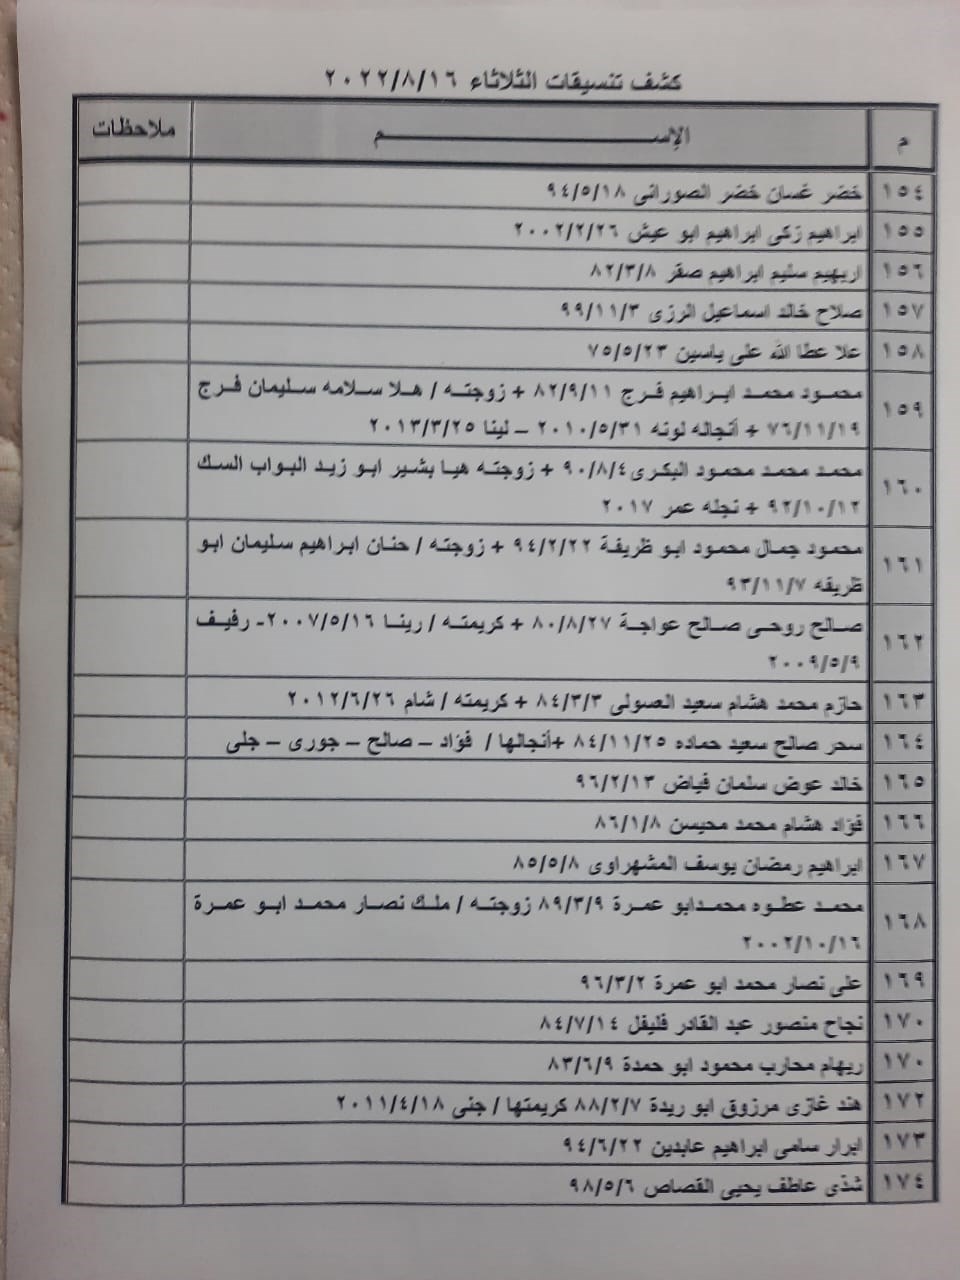 كشف تنسيقات الثلاثاء ٢٠٢٢/٨/١٦
م الإســــــــــم ملاحظات
١٥٤ خضر غسان خضر الصورانى ٩٤/٥/١٨
١٥٥ ابراهيم زكى ابراهيم ابو عيش ٢٠٠٢/٢/٢٦
١٥٦ اريهيم سليم ابراهيم صقر ٨٢/٣/٨
١٥٧ صلاح خالد اسماعيل الرزى ٩٩/١١/٣
١٥٨ علا عطا الله على ياسين ٧٥/٥/٢٣
١٥٩ محمود محمد ابراهيم فرج ٨٢/٩/١١ + زوجته / هلا سلامه سليمان فرج
٧٦/١١/١٩ + أنجاله لونه ٢٠١٠/٥/٣١ – لينا ٢٠١٣/٣/٢٥
١٦٠ محمد محمد محمود البكرى ٩٠/٨/٤ + زوجته هيا بشير ابو زيد البواب السك
٩٢/١٠/١٢ + نجله عمر ٢٠١٧
١٦١ محمود جمال محمود ابو ظريفة ٩٤/٢/٢٢ + زوجته / حنان ابراهيم سليمان ابو
ظريفه ٩٣/١١/٧
١٦٢ صالح روحى صالح عواجة ٨٠/٨/٢٧ + كريمته / رينا ٢٠٠٧/٥/١٦- رفيف
٢٠٠٩/٥/٩
١٦٣ حازم محمد هشام سعيد الصولى ٨٤/٣/٣ + كريمته / شام ٢٠١٢/٦/٢٦
١٦٤ سحر صالح سعيد حماده ٨٤/١١/٢٥ +أنجالها / فؤاد – صالح – جورى – جلى
١٦٥ خالد عوض سلمان فياض ٩٦/٢/١٣
١٦٦ فؤاد هشام محمد محيسن ٨٦/١/٨
١٦٧ ابراهيم رمضان يوسف المشهراوى ٨٥/٥/٨
١٦٨ محمد عطوه محمدابو عمرة ٨٩/٣/٩ زوجته / ملك نصار محمد ابو عمرة
٢٠٠٢/١٠/١٦
١٦٩ على نصار محمد ابو عمرة ٩٦/٣/٢
١٧٠ نجاح منصور عبد القادر فليفل ٨٤/٧/١٤
١٧٠ ريهام محارب محمود ابو حمدة ٨٣/٦/٩
١٧٢ هند غازى مرزوق ابو ريدة ٨٨/٢/٧ كريمتها / جنى ٢٠١١/٤/١٨
١٧٣ ابرار سامى ابراهيم عابدين ٩٤/٦/٢٢
١٧٤ شذى عاطف يحيى القصاص ٩٨/٥/٦